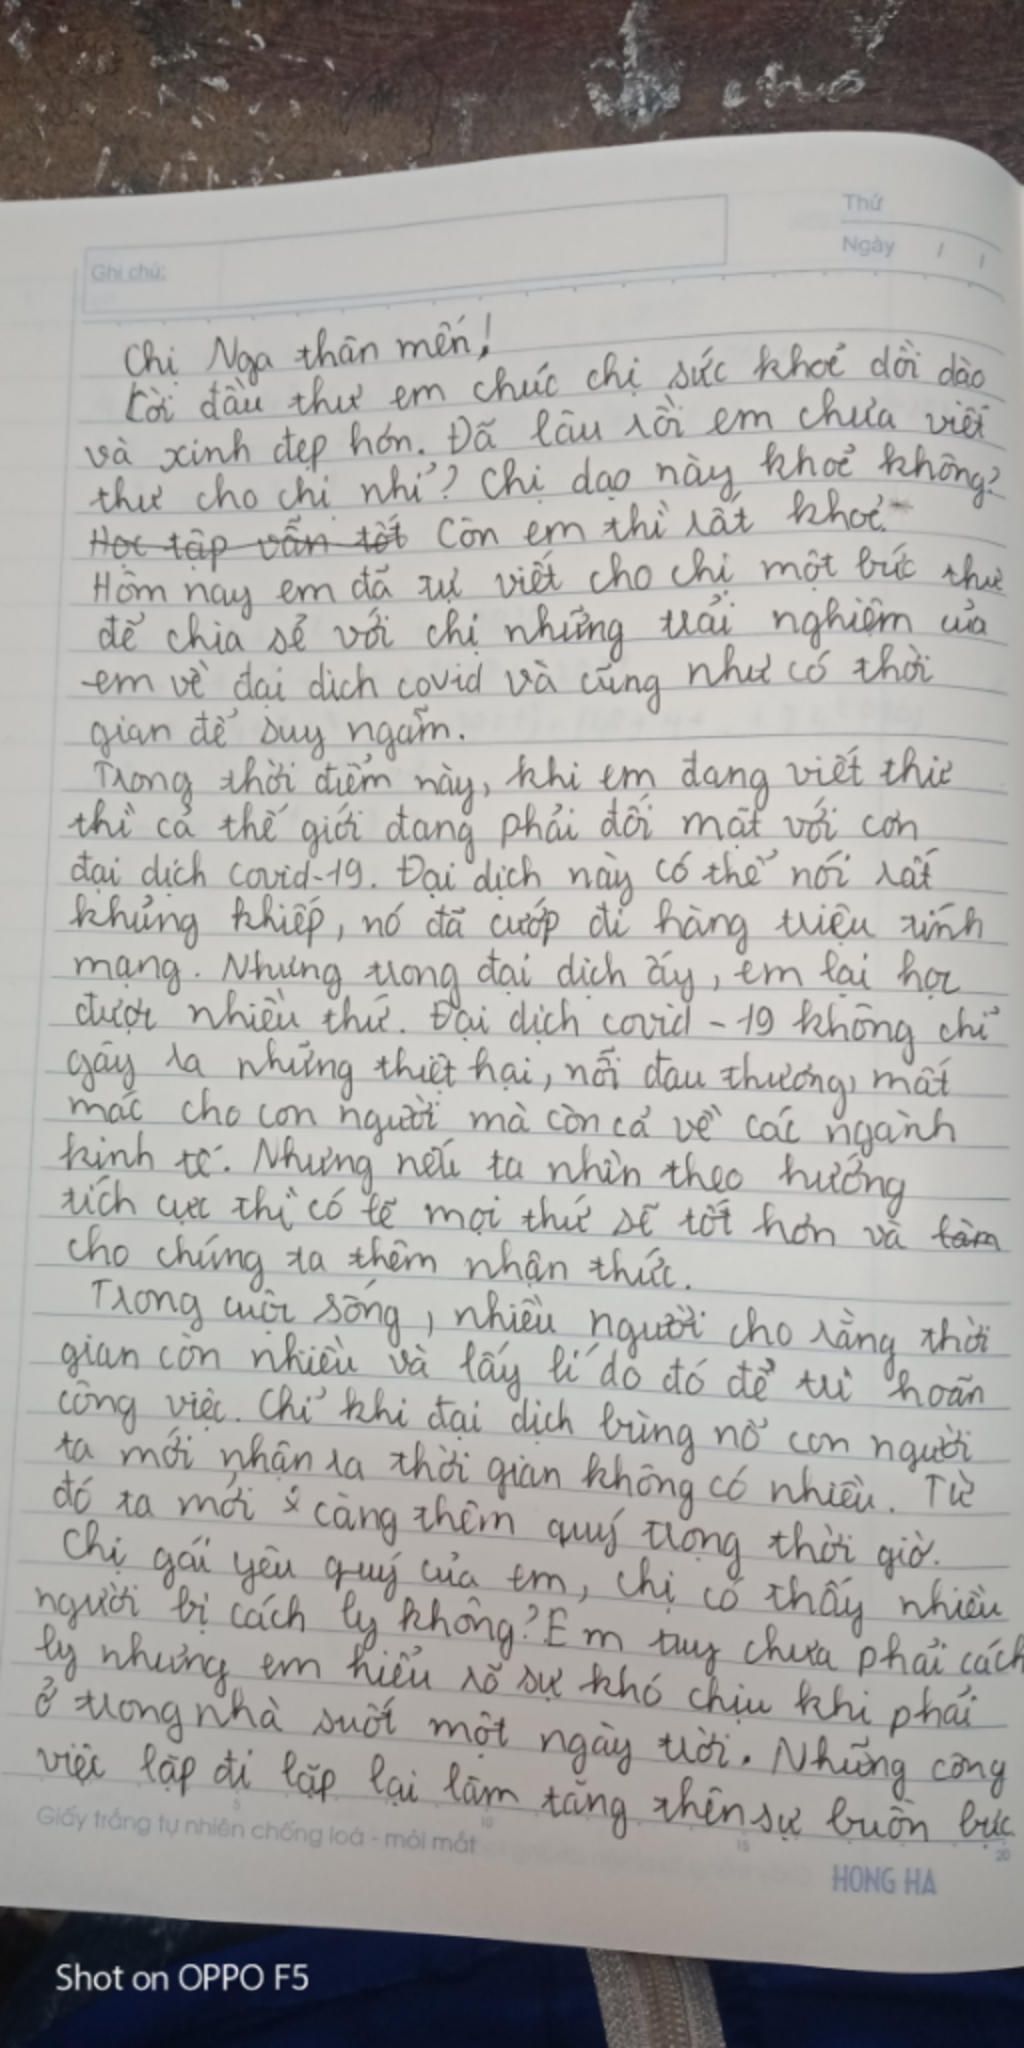 chơ
Thứ
Ngày / /
Ghi chú:
Chị Nga thân mến!
Lời đầu thư em chúc chị sức khoẻ dồi dào
và xinh đẹp hơn. Đã lâu rồi em chưa viết
thư cho chị nhỉ? Chị dạo này khoẻ không?
Học tập vẫn tốt Còn em thì rất khoẻ.
Hôm nay em đã tự viết cho chị một bức thư
để chia sẻ với chị những trải nghiệm của
em về đại dịch covid và cũng như có thời
gian để suy ngẫm.
Trong thời điểm này, khi em đang viết thư
thì cả thế giới đang phải đối mặt với cơn
đại dịch covid-19. Đại dịch này có thể nói rất
khủng khiếp, nó đã cướp đi hàng triệu sinh
mạng. Nhưng trong đại dịch ấy, em lại học
được nhiều thứ. Đại dịch covid-19 không chỉ
gây ra những thiệt hại, nỗi đau thương, mất
mác cho con người mà còn cả về các ngành
kinh tế. Nhưng nếu ta nhìn theo hướng
tích cực thì có lẽ mọi thứ sẽ tốt hơn và làm
cho chúng ta thêm nhận thức.
Trong cuộc sống, nhiều người cho rằng thời
gian còn nhiều và lấy lí do đó để trì hoãn
công việc. Chỉ khi đại dịch bùng nổ con người
ta mới nhận ra thời gian không có nhiều. Từ
đó ta mới càng thêm quý trọng thời giờ.
Chị gái yêu quý của em, chị có thấy nhiều
người bị cách ly không? Em tuy chưa phải cách
ly nhưng em hiểu rõ sự khó chịu khi phải
ở trong nhà suốt một ngày trời. Những công
việc lặp đi lặp lại làm tăng thên sự buồn bực
Giấy trắng tự nhiên chống loá - mỏi mắt
5 10 15 20
HONG HA
Shot on OPPO F5